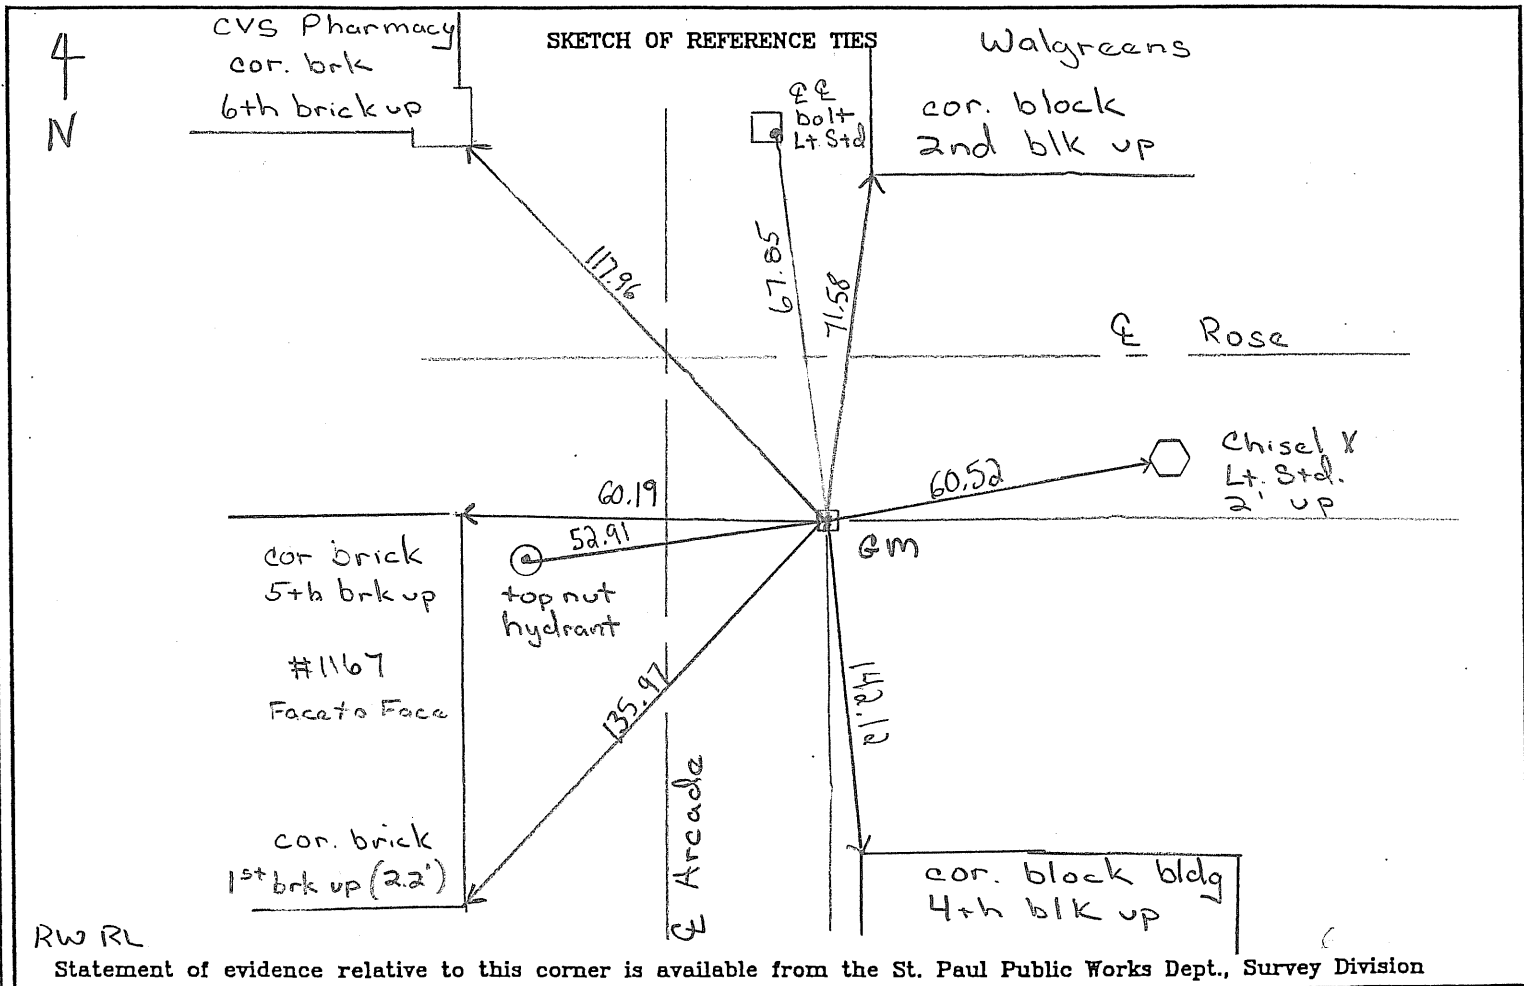 SKETCH OF REFERENCE TIES
N
CVS Pharmacy
cor. brk
6th brick up
℄ ℄
bolt
Lt. Std
Walgreens
cor. block
2nd blk up
117.96
67.85
71.58
℄ Rose
Chisel X
Lt. Std.
2' up
60.52
60.19
52.91
GM
cor brick
5th brk up
top nut
hydrant
#1167
Face to Face
135.97
142.12
℄ Arcade
cor. brick
1st brk up (2.2')
cor. block bldg
4th blk up
RW RL
Statement of evidence relative to this corner is available from the St. Paul Public Works Dept., Survey Division